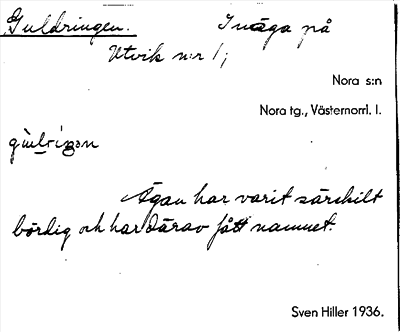 Guldringen. Inäga på
Utvik n:r 1;
Nora s:n
Nora tg., Västernorrl. l.
Ägan har varit särskilt
bördig och har därav fått namnet.
Sven Hiller 1936.